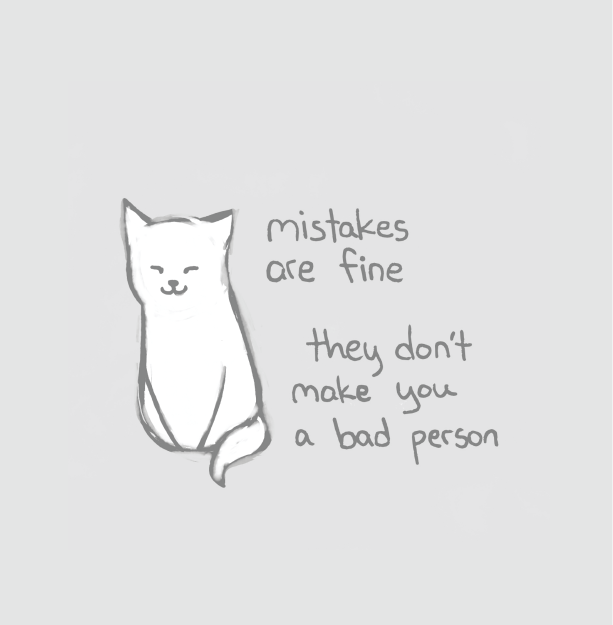 mistakes
are fine
they don't
make you
a bad person